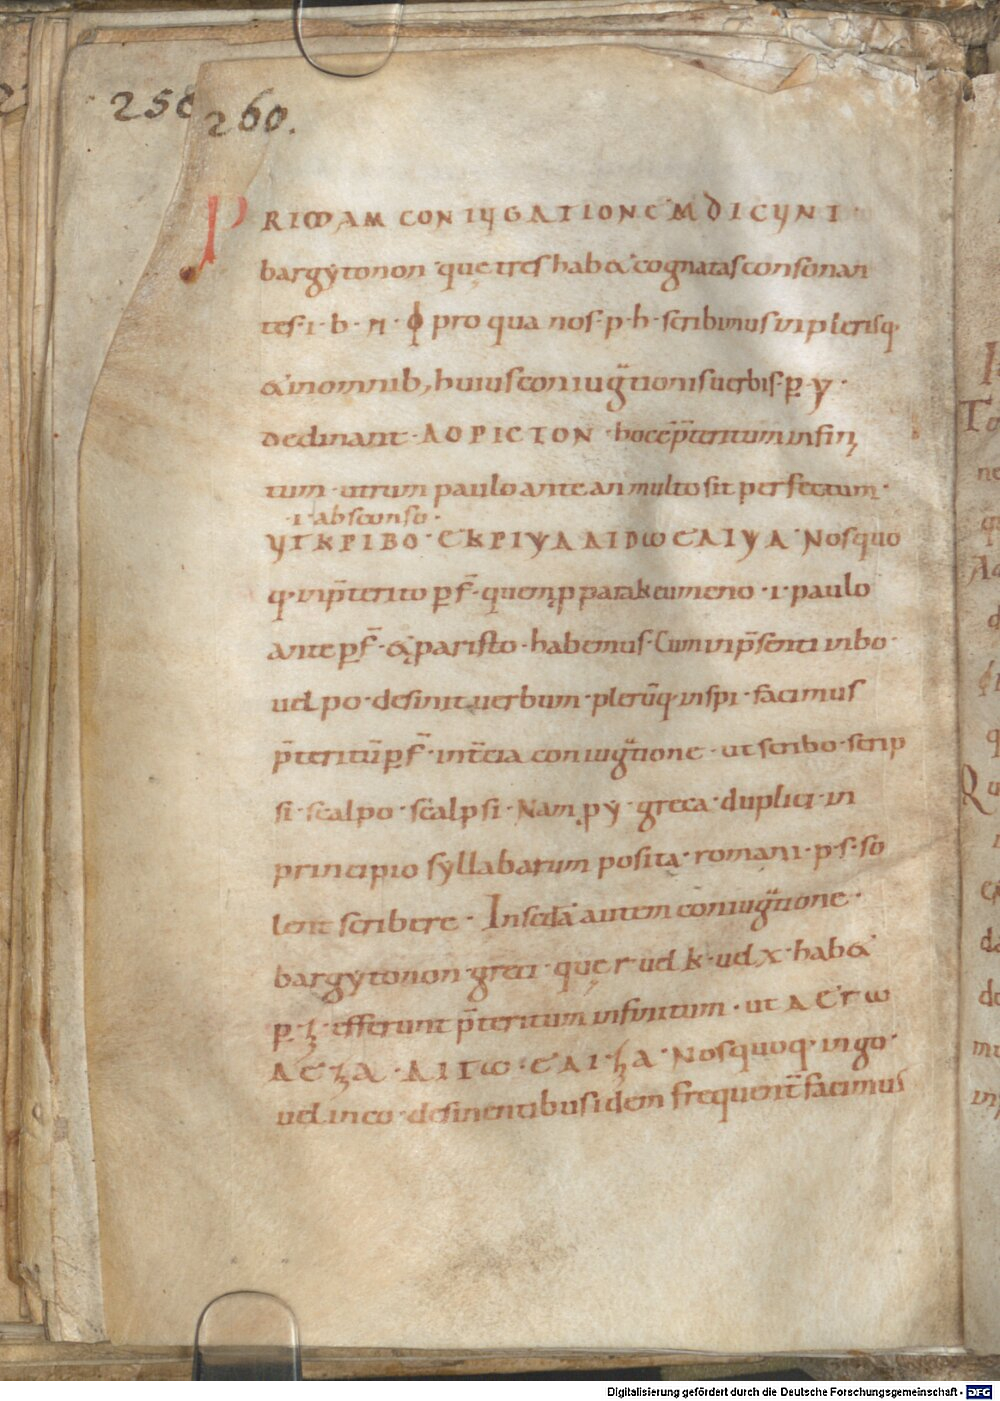 258
260.
PRIMAM CONIYGATIONEM DICYNT
bargytonon que tres hab& cognatas consonan
tes · i · b · π · ϕ pro qua nos · p · h · scribimus in plerisq·
& in omnib; huius coniug̅tionis uerbis · p̲ · y ·
declinant · AOPICTON · hoc ē p̅teritum infini
tum · utrum paulo ante an multo sit perfectum ·
· i · absconso ·
YΓKPIBO · EKPIYA ΛIBω EΛIYA · Nosquo
q· in p̅terito p̲f̅ · quem p parakeumeno · i · paulo
ante p̲f̅ · & paristo · habemus · Cum in p̅senti in bo ·
uel po · desinit uerbum · pleru̅q· in spi · facimus
p̅teritu̅ p̲f̅ · in t̅cia coniug̅tione · ut scribo · scrip
si · scalpo · scalpsi · Nam py · greca · duplici · in
principio syllabarum posita · romani · p · s · so
lent scribere · In sc̅da autem coniug̅tione ·
bargytonon · greci · que r · uel k · uel x · hab&
p̲ · ξ · efferunt p̅teritum infinitum · ut ΛEΓω
ΛEξA · ΛIΓω · EΛIξA · Nosquoq· in go ·
uel in co · desinentibus idem frequent̅ facimus
Digitalisierung gefördert durch die Deutsche Forschungsgemeinschaft - DFG